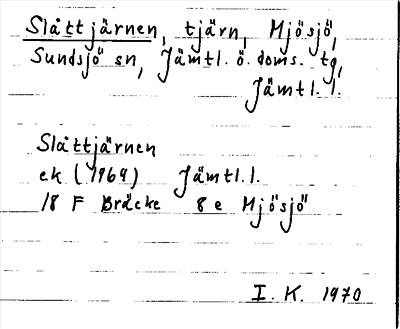 Slåttjärnen, tjärn, Mjösjö,
Sundsjö sn, Jämtl. ö. doms. tg,
Jämtl. l.
Slåttjärnen
ek (1969) Jämtl. l.
18 F Bräcke 8e Mjösjö
I. K. 1970